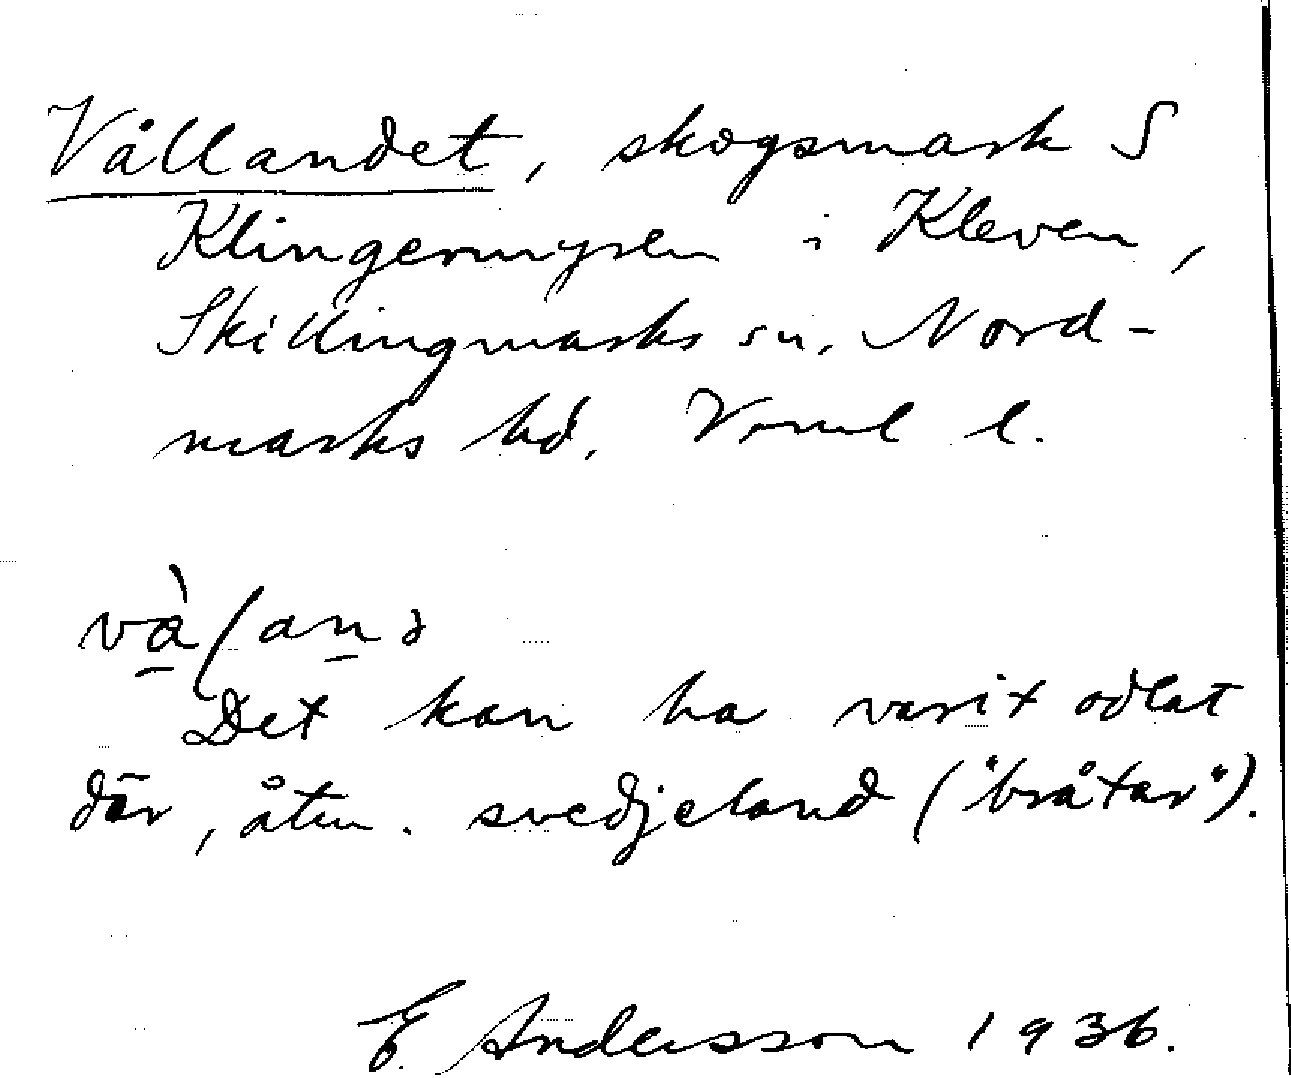 Vållandet, skogsmark S
Klingermyren i Kleven,
Skillingmarks sn. Nord-
marks hd. Vrml l.
Det kan ha varit odlat
där, åtm. svedjeland ("bråtar").
E. Andersson 1936.